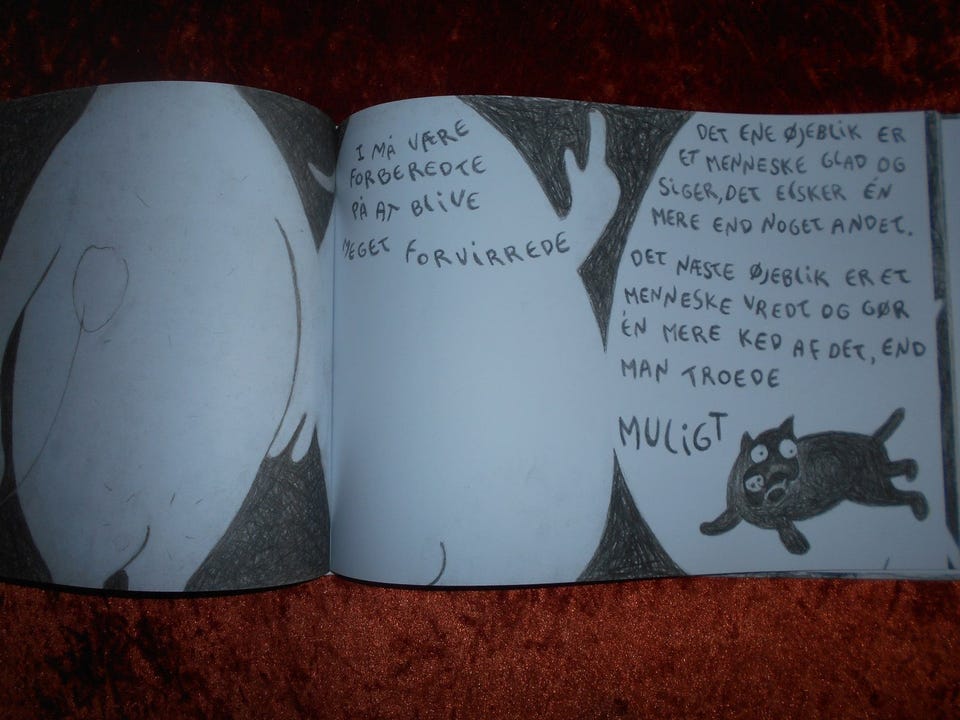 I MÅ VÆRE
FORBEREDTE
PÅ AT BLIVE
MEGET FORVIRREDE
DET ENE ØJEBLIK ER
ET MENNESKE GLAD OG
SIGER, DET ELSKER ÉN
MERE END NOGET ANDET.
DET NÆSTE ØJEBLIK ER ET
MENNESKE VREDT OG GØR
ÉN MERE KED AF DET, END
MAN TROEDE
MULIGT